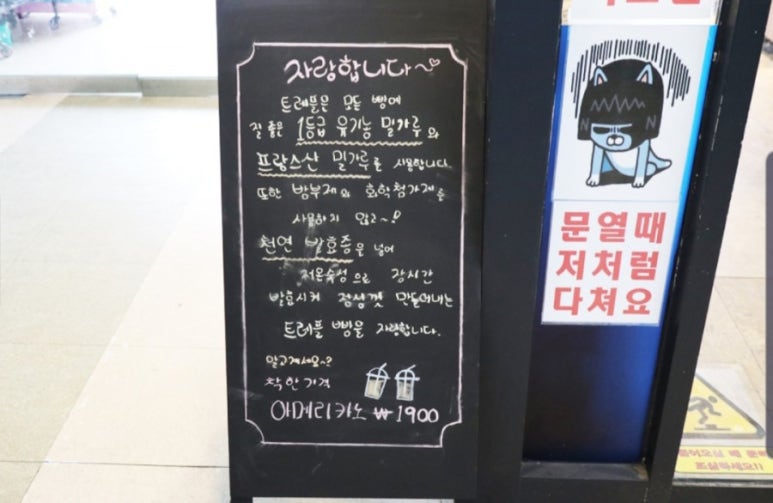 자랑합니다~
트레플은 모든 빵에
질 좋은 1등급 유기농 밀가루와
프랑스산 밀가루를 사용합니다.
또한 방부제와 화학첨가제를
사용하지 않고~!
천연 발효종을 넣어
저온숙성으로 장시간
발효시켜 정성껏 만들어내는
트레플 빵을 자랑합니다.
알고계세요~?
착한가격
아메리카노 ₩1900
문열때
저처럼
다쳐요
조심하세요!!